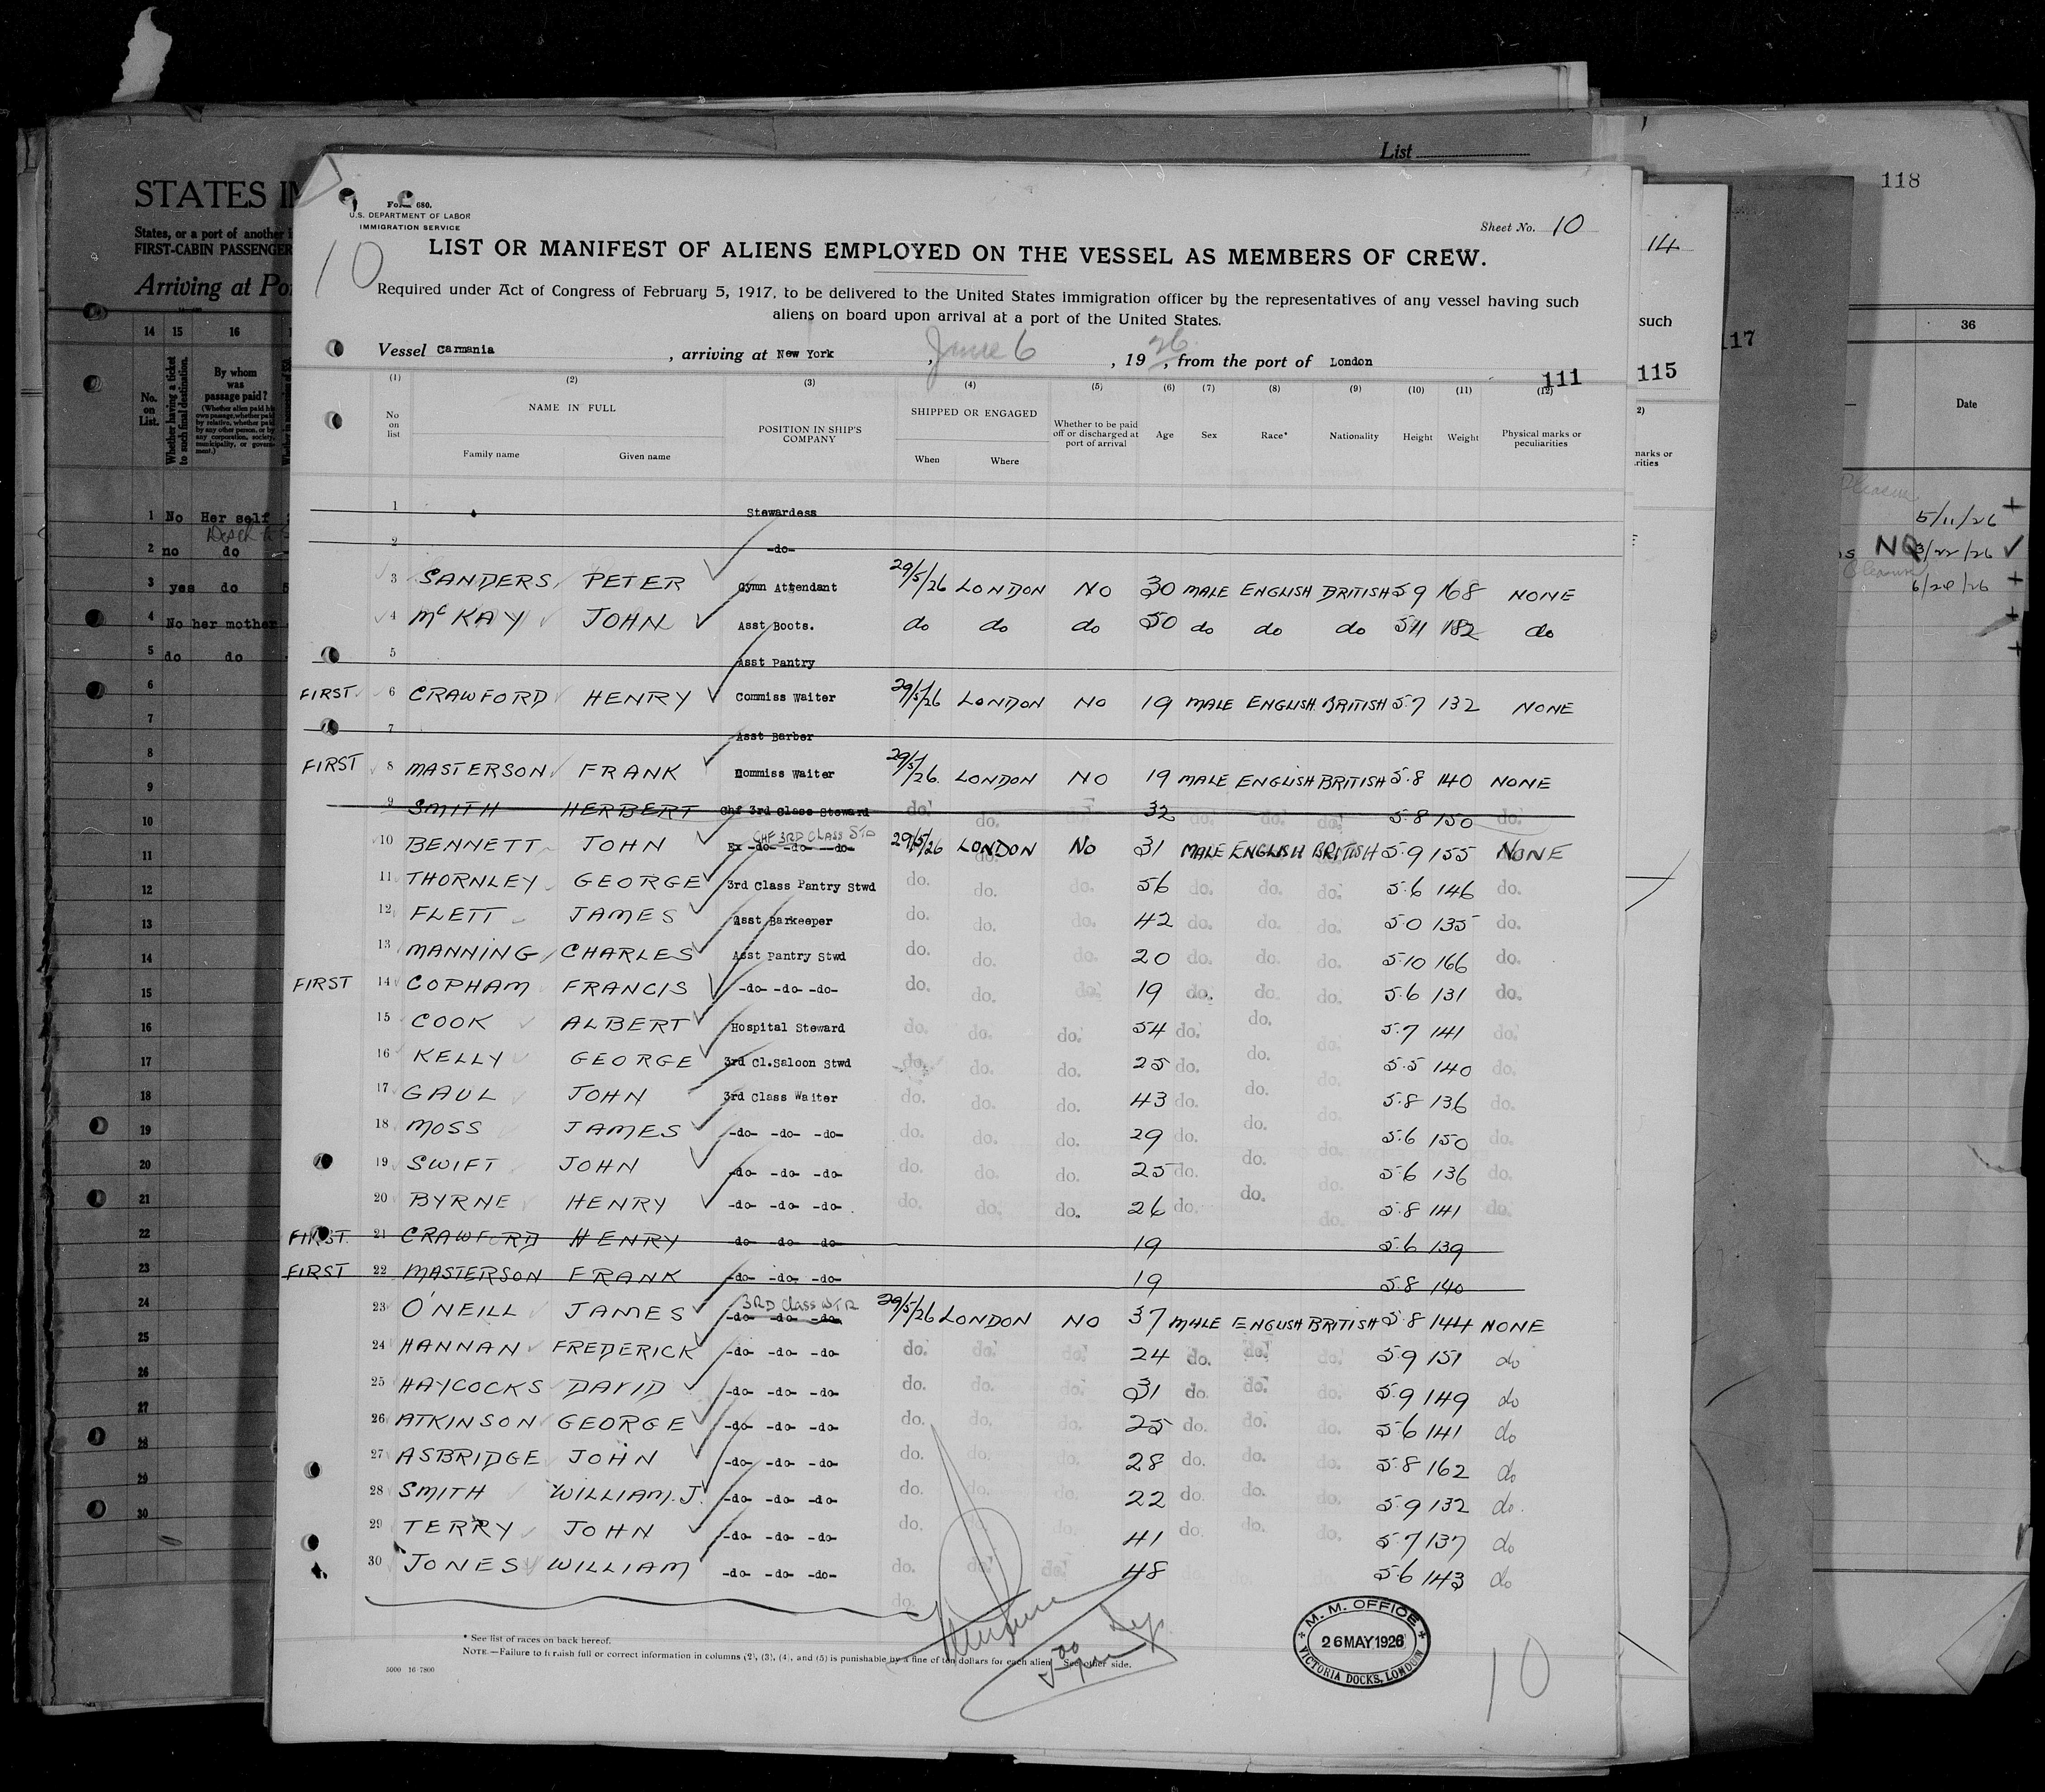 List
118
STATES I
States, or a port of another i
FIRST-CABIN PASSENGER
Arriving at Po
14 15 16
No. on List.
Whether having a ticket to such final destination.
By whom was passage paid?
(Whether alien paid his own passage, whether paid by relative, whether paid by any other person, or by any corporation, society, municipality, or government.)
1 No Her self
2 no do
3 yes do
4 No her mother
5 do do
6
7
8
9
10
11
12
13
14
15
16
17
18
19
20
21
22
23
24
25
26
27
28
29
30
Form 680.
U.S. DEPARTMENT OF LABOR
IMMIGRATION SERVICE
Sheet No. 10
10
LIST OR MANIFEST OF ALIENS EMPLOYED ON THE VESSEL AS MEMBERS OF CREW.
Required under Act of Congress of February 5, 1917, to be delivered to the United States immigration officer by the representatives of any vessel having such
aliens on board upon arrival at a port of the United States.
Vessel Carmania , arriving at New York , June 6 , 1926, from the port of London
111
(1) (2) (3) (4) (5) (6) (7) (8) (9) (10) (11) (12)
No on list
NAME IN FULL
Family name Given name
POSITION IN SHIP'S COMPANY
SHIPPED OR ENGAGED
When Where
Whether to be paid off or discharged at port of arrival
Age Sex Race* Nationality Height Weight Physical marks or peculiarities
1 Stewardess
2 -do-
3 SANDERS PETER Gymn Attendant 29/5/26 LONDON NO 30 MALE ENGLISH BRITISH 5 9 168 NONE
4 McKAY JOHN Asst Boots. do do do 50 do do do 5 11 182 do
5 Asst Pantry
FIRST 6 CRAWFORD HENRY Commiss Waiter 29/5/26 LONDON NO 19 MALE ENGLISH BRITISH 5.7 132 NONE
7 Asst Barber
FIRST 8 MASTERSON FRANK Commiss Waiter 29/5/26. LONDON NO 19 MALE ENGLISH BRITISH 5.8 140 NONE
9 SMITH HERBERT Chf 3rd Class Steward do. do. 32 do. do. do. 5.8 150 do.
CHF 3RD CLASS STD
10 BENNETT JOHN Ex -do- -do- -do- 29/5/26 LONDON NO 31 MALE ENGLISH BRITISH 5.9 155 NONE
11 THORNLEY GEORGE 3rd Class Pantry Stwd do. do. do. 56 do. do. do. 5.6 146 do.
12 FLETT JAMES Asst Barkeeper do. do. do. 42 do. do. do. 5.0 135 do.
13 MANNING CHARLES Asst Pantry Stwd do. do. do. 20 do. do. do. 5.10 166 do.
FIRST 14 COPHAM FRANCIS -do- -do- -do- do. do. do. 19 do. do. do. 5.6 131 do.
15 COOK ALBERT Hospital Steward do. do. do. 54 do. do. do. 5.7 141 do.
16 KELLY GEORGE 3rd Cl.Saloon Stwd do. do. do. 25 do. do. do. 5.5 140 do.
17 GAUL JOHN 3rd Class Waiter do. do. do. 43 do. do. do. 5.8 136 do.
18 MOSS JAMES -do- -do- -do- do. do. do. 29 do. do. do. 5.6 150 do.
19 SWIFT JOHN -do- -do- -do- do. do. do. 25 do. do. do. 5.6 136 do.
20 BYRNE HENRY -do- -do- -do- do. do. do. 26 do. do. do. 5.8 141 do.
FIRST 21 CRAWFORD HENRY -do- -do- -do- 19 5.6 139
FIRST 22 MASTERSON FRANK -do- -do- -do- 19 5.8 140
3RD Class WTR
23 O'NEILL JAMES -do- -do- -do- 29/5/26 LONDON NO 37 MALE ENGLISH BRITISH 5.8 144 NONE
24 HANNAN FREDERICK -do- -do- -do- do. do. do. 24 do. do. do. 5.9 151 do
25 HAYCOCKS DAVID -do- -do- -do- do. do. do. 31 do. do. do. 5.9 149 do
26 ATKINSON GEORGE -do- -do- -do- do. do. do. 25 do. do. do. 5.6 141 do
27 ASBRIDGE JOHN -do- -do- -do- do. do. do. 28 do. do. do. 5.8 162 do
28 SMITH WILLIAM.J. -do- -do- -do- do. do. do. 22 do. do. do. 5.9 132 do.
29 TERRY JOHN -do- -do- -do- do. do. do. 41 do. do. do. 5.7 137 do
30 JONES WILLIAM -do- -do- -do- do. do. do. 48 do. do. do. 5.6 143 do
do.
* See list of races on back hereof.
NOTE.—Failure to furnish full or correct information in columns (2), (3), (4), and (5) is punishable by a fine of ten dollars for each alien. See other side.
5000 16 7800
M. M. OFFICE
26 MAY 1926
VICTORIA DOCKS, LONDON
10
14
such
115
2)
marks or
rities
117
36
Date
Pleasure
5/11/26 +
NQ 3/22/26 ✓
Pleasure
6/28/26 +